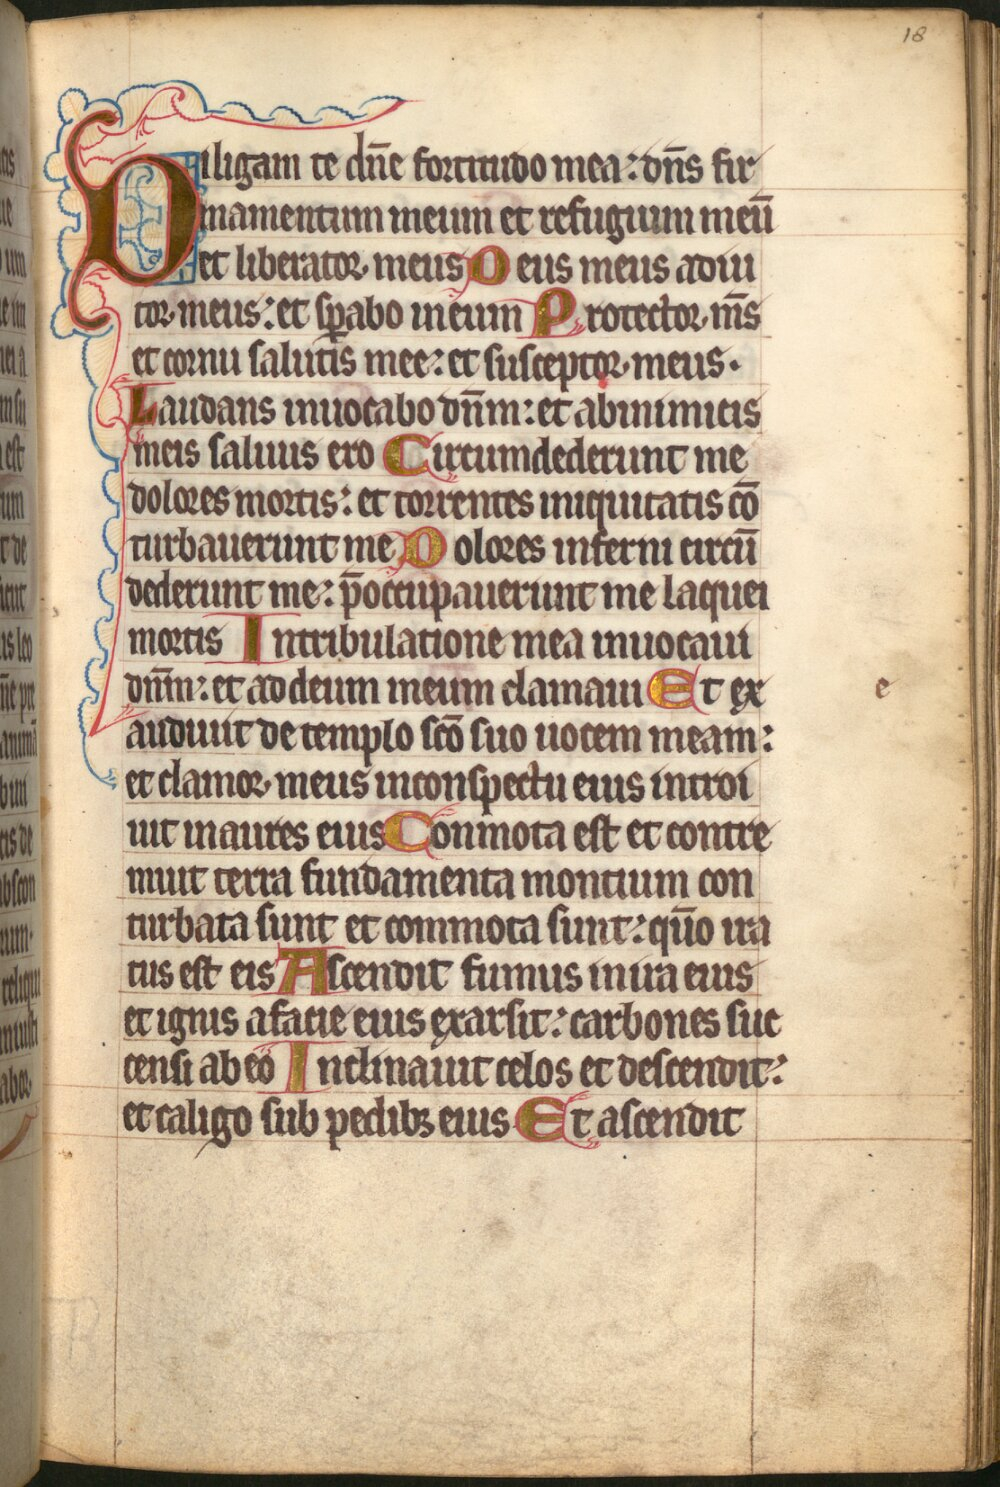 18
Diligam te dn̄e fortitudo mea: dn̄s fir
mamentum meum et refugium meū
et liberator meus Deus meus adiu
tor meus: et sꝑabo in eum Protector m̄s
et cornu salutis mee: et susceptor meus.
Laudans inuocabo dn̄m: et ab inimicis
meis saluus ero Circumdederunt me
dolores mortis: et torrentes iniquitatis cō
turbauerunt me Dolores inferni circū
dederunt me: p̄occupauerunt me laquei
mortis In tribulatione mea inuocaui
dn̄m: et ad deum meum clamaui Et ex
audiuit de templo scō suo uocem meam:
et clamor meus in conspectu eius introi
uit in aures eius Conmota est et contre
muit terra fundamenta montium con
turbata sunt et commota sunt: quō ira
tus est eis Ascendit fumus in ira eius
et ignis a facie eius exarsit: carbones suc
censi ab eo Inclinauit celos et descendit:
et caligo sub pedibꝫ eius Et ascendit
e